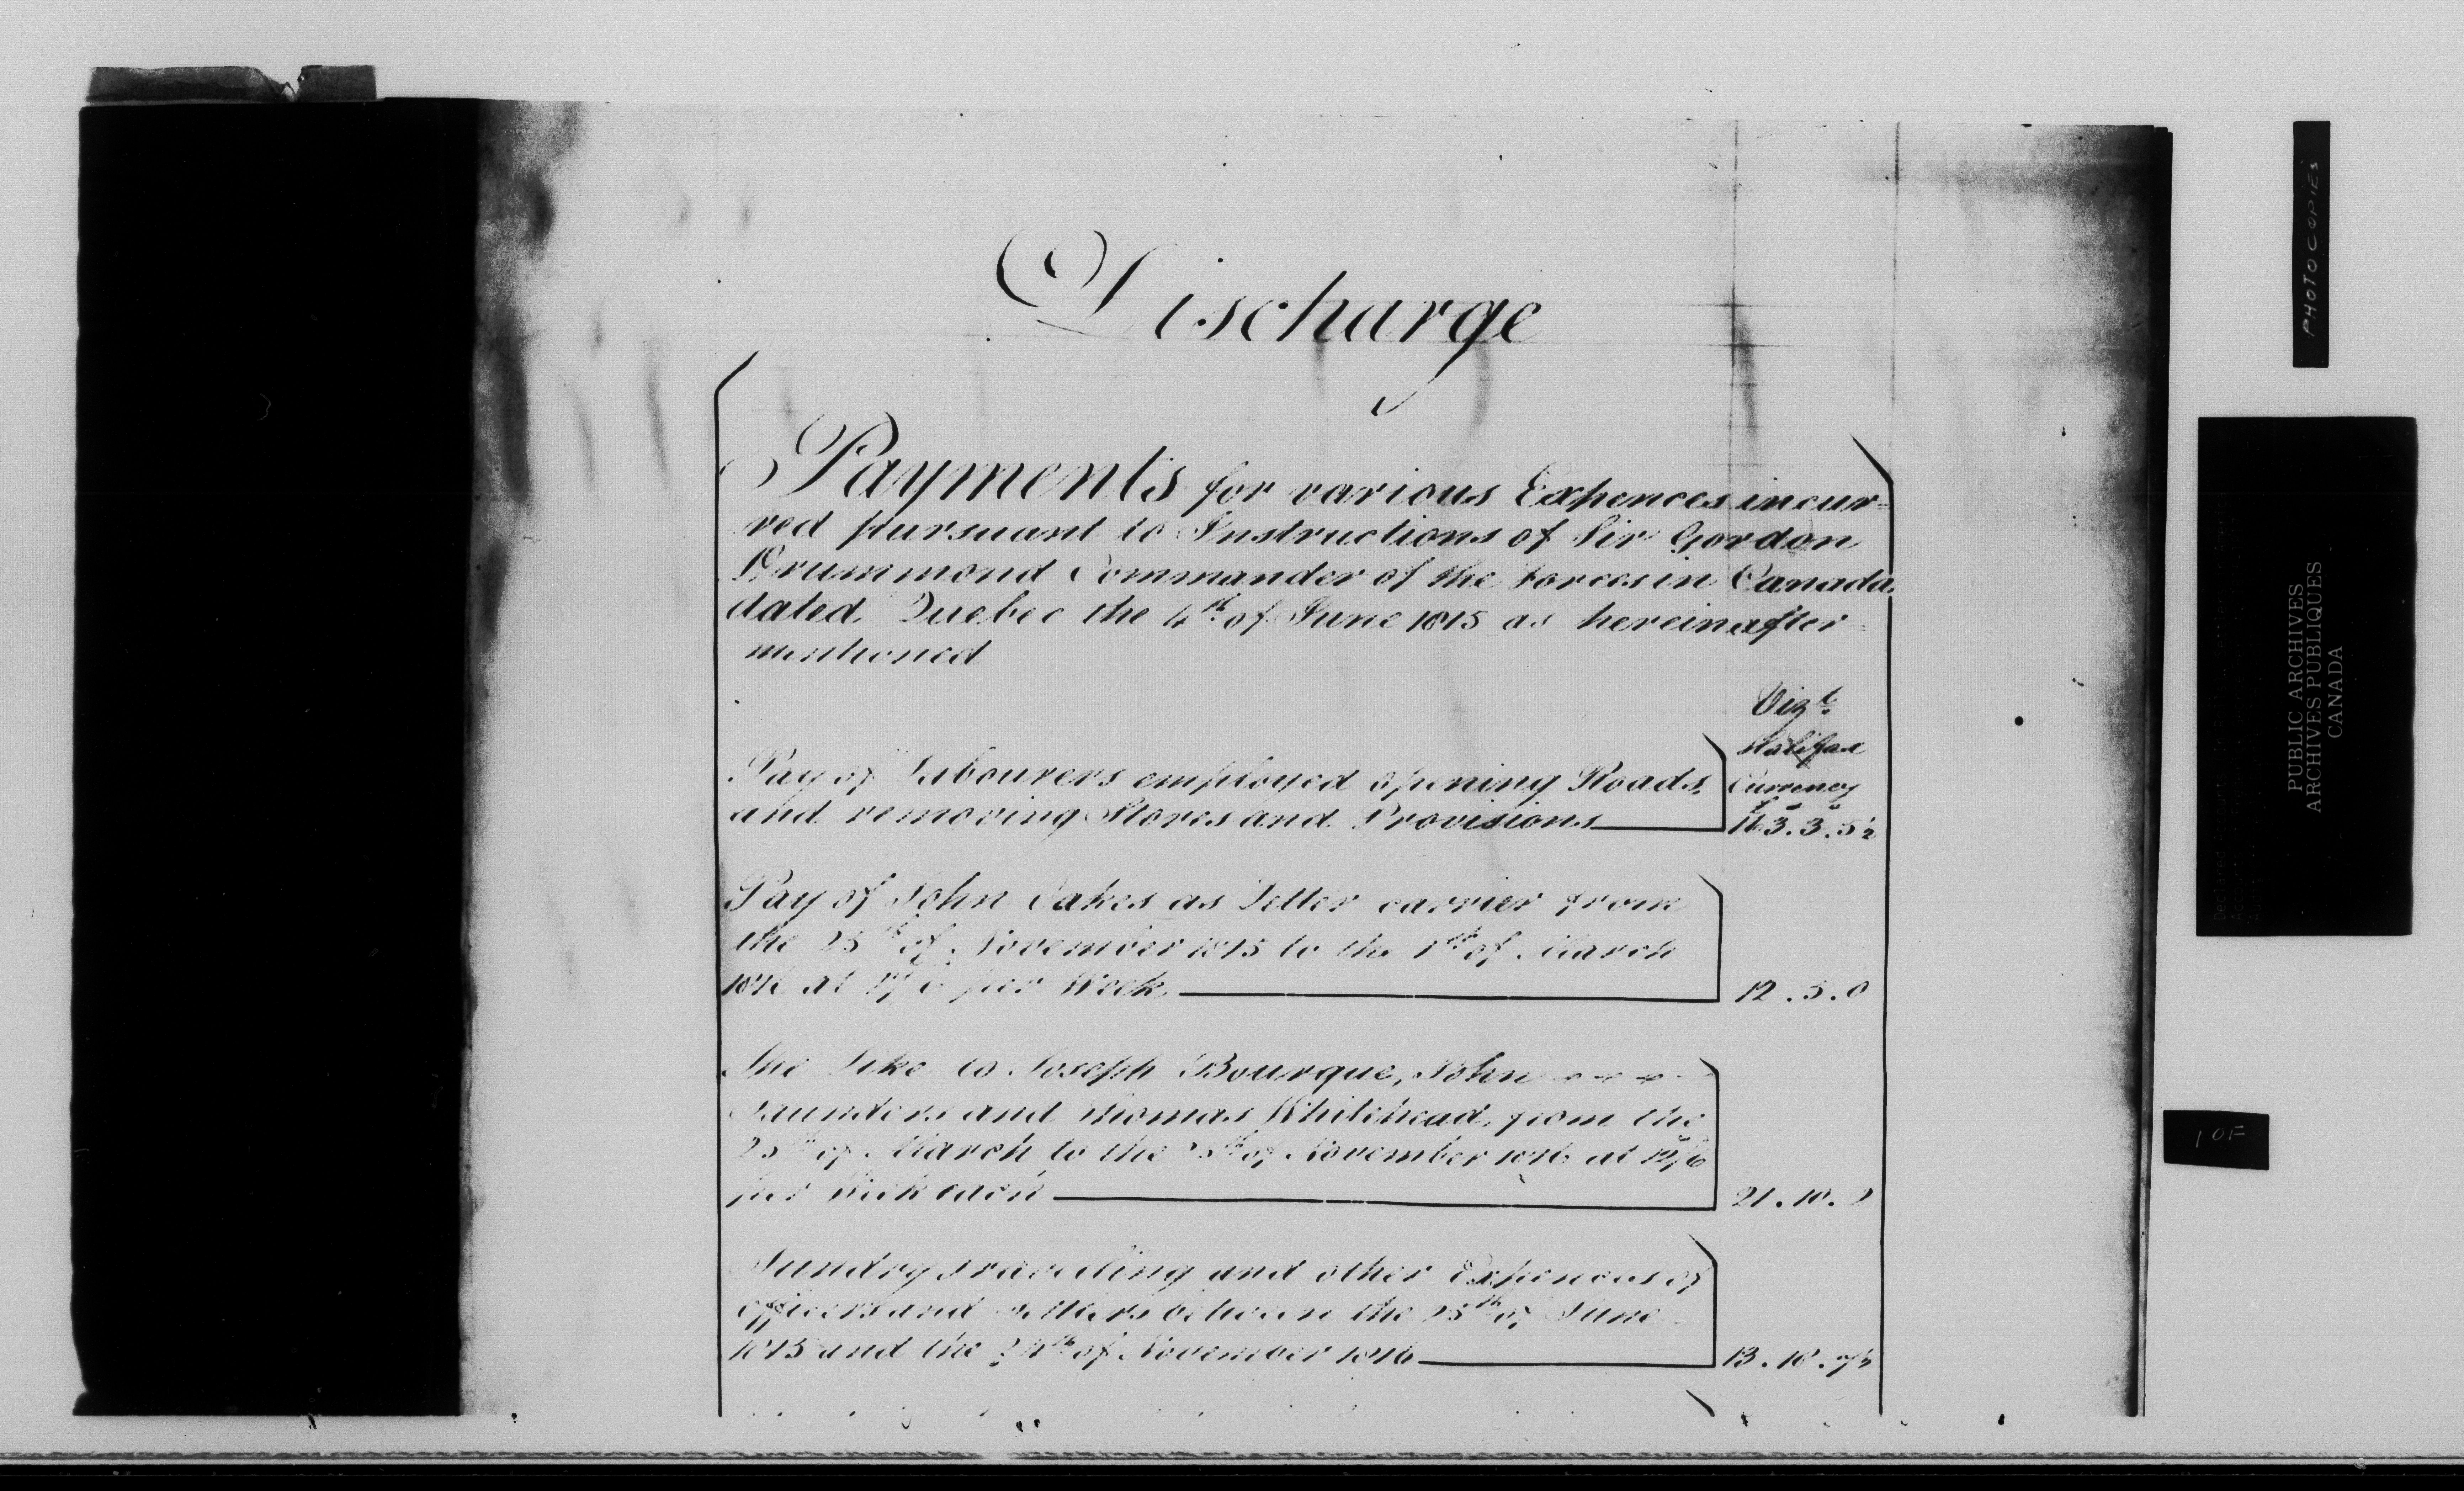 Discharge
Payments for various Expences incur=
red pursuant to Instructions of Sir Gordon
Drummond Commander of the Forces in Canada
dated Quebec the 4th of June 1815 as hereinafter=
mentioned
Vizt.
Halifax
Currency
Pay of Labourers employed opening Roads,
and removing Stores and Provisions 163.3.5½
Pay of John Oakes as Letter carrier from
the 25th of November 1815 to the 1st of March
1816 at per Week 12.5.0
The Like to Joseph Bourque, John
Saunders and Thomas Whitehead, from the
25th of March to the of November 1816 at 12/6
per Week each 21.10.0
Sundry travelling and other Expences of
officers and settlers between the 25th of June
1815 and the 24th of November 1816 13.18.7½
PHOTOCOPIES
PUBLIC ARCHIVES
ARCHIVES PUBLIQUES
CANADA
1 OF